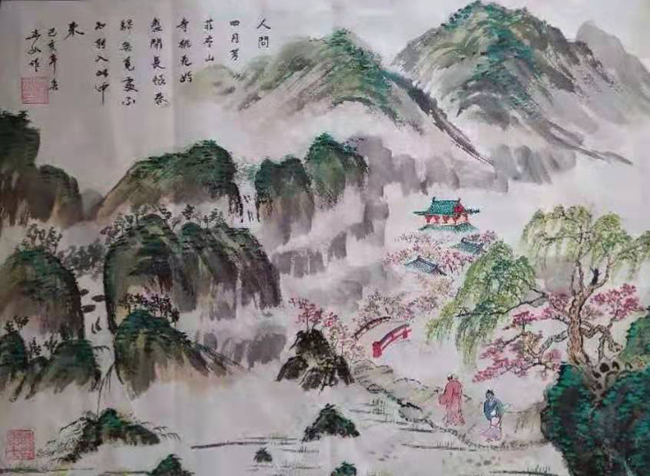 人間
四月芳
菲尽山
寺桃花始
盛開長恨春
歸無覓處不
知轉入此中
來
己亥年春
作